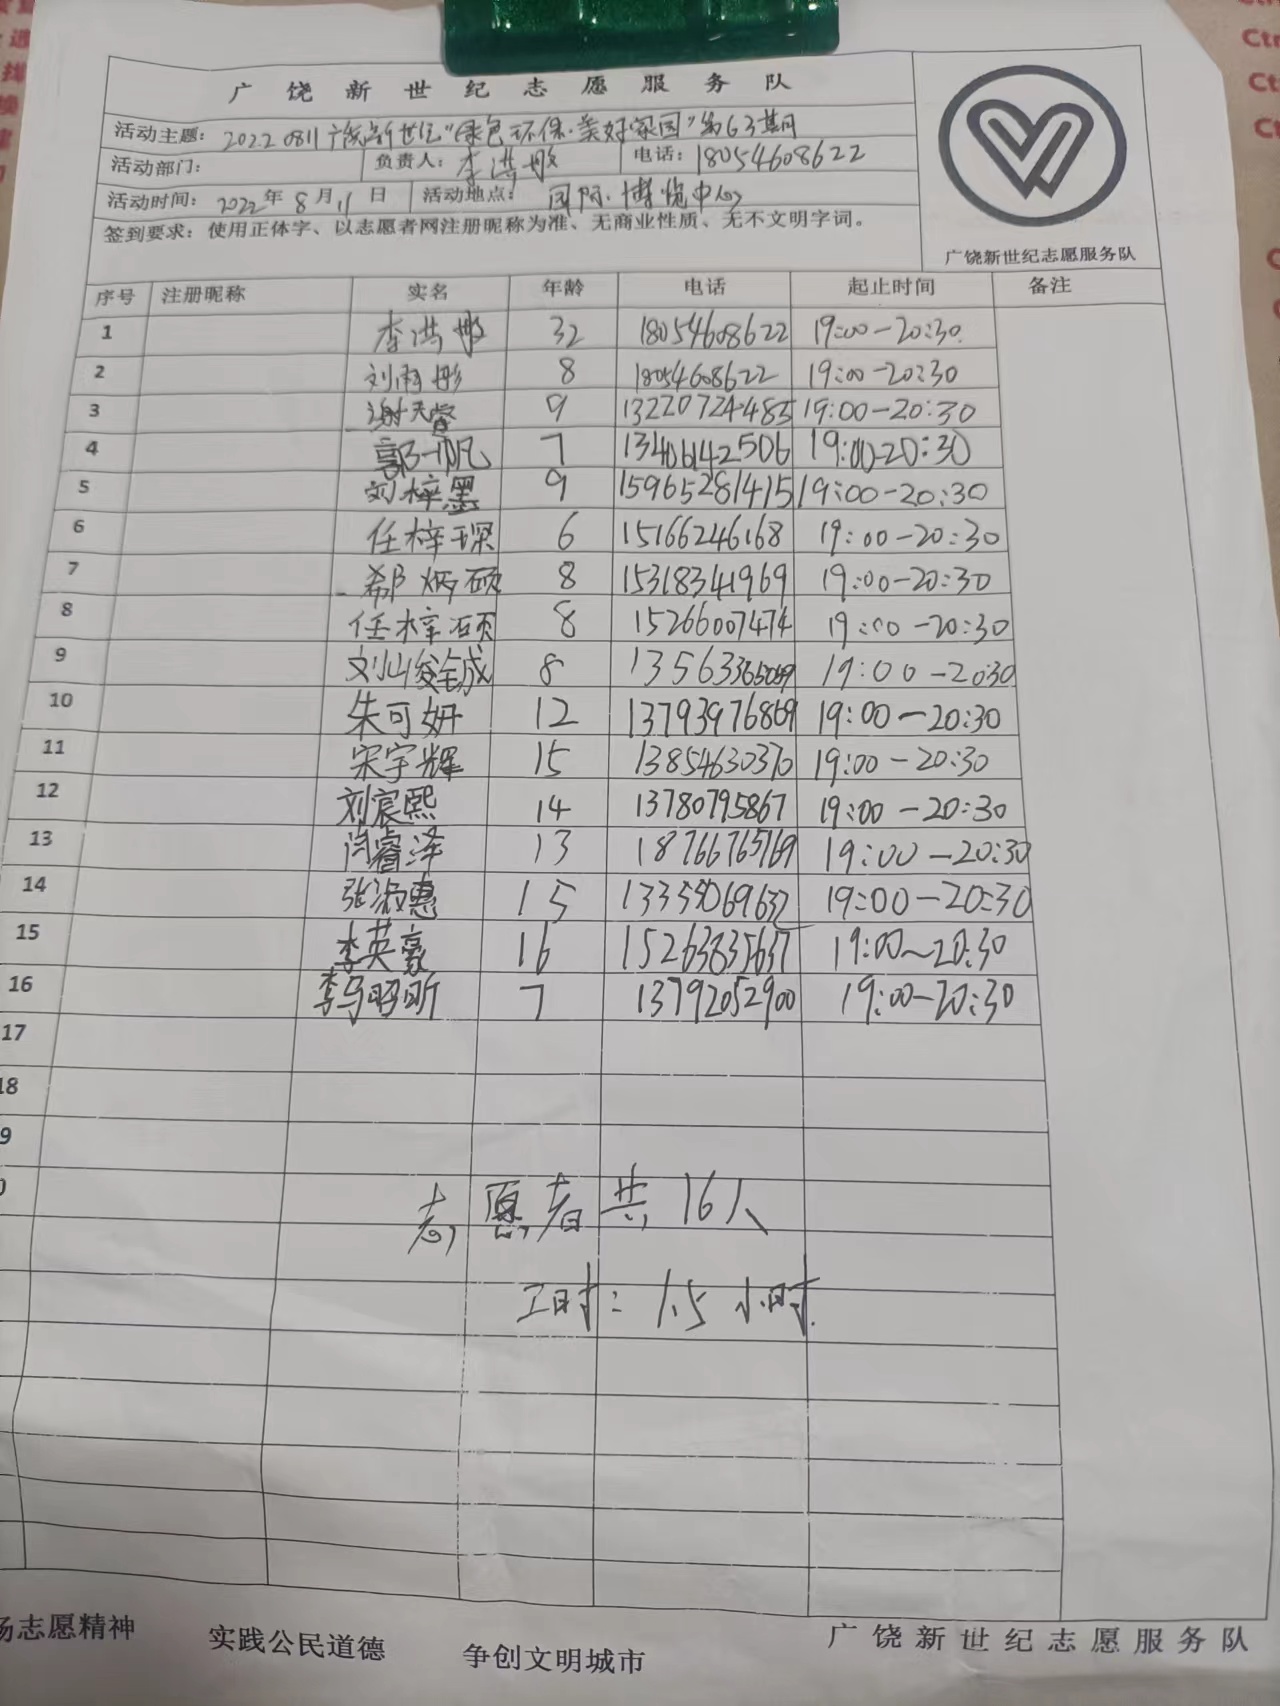 广饶新世纪志愿服务队
活动主题：20220811广饶新世纪"绿色环保·美好家园"第63期
活动部门： 负责人：李洪彬 电话：18054608622
活动时间：2022年8月11日 活动地点：国际博览中心
签到要求：使用正体字、以志愿者网注册昵称为准、无商业性质、无不文明字词。
广饶新世纪志愿服务队
序号 注册昵称 实名 年龄 电话 起止时间 备注
1 李洪彬 32 18054608622 19:00-20:30
2 刘雨彤 8 18054608622 19:00-20:30
3 谢天睿 9 13220724485 19:00-20:30
4 郭一帆 7 13406142506 19:00-20:30
5 刘梓墨 9 15965281415 19:00-20:30
6 任梓琛 6 15166246168 19:00-20:30
7 郗炳硕 8 15318341969 19:00-20:30
8 任梓硕 8 15266007474 19:00-20:30
9 刘峻诚 8 19:00-20:30
10 朱可妍 12 13793976869 19:00-20:30
11 宋宇辉 15 13854630370 19:00-20:30
12 刘宸熙 14 13780795867 19:00-20:30
13 闫睿泽 13 18766765769 19:00-20:30
14 张淑惠 15 19:00-20:30
15 李英豪 16 15263835637 19:00~20:30
16 李马昭昕 7 13792052900 19:00-20:30
17
18
9
志愿者共16人
工时：1.5小时.
扬志愿精神 实践公民道德 争创文明城市 广饶新世纪志愿服务队